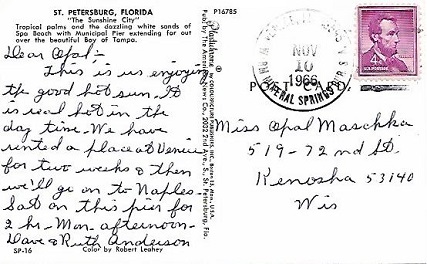 ST. PETERSBURG, FLORIDA
"The Sunshine City"
Tropical palms and the dazzling white sands of
Spa Beach with Municipal Pier extending far out
over the beautiful Bay of Tampa.
Dear Opal:-
This is us enjoying
the good hot sun. It
is real hot in the
day time. We have
rented a place at Venice
for two weeks & then
we'll go on to Naples.
Sat on this pier for
2 hr. Mon. afternoon.
Dave & Ruth Anderson
SP-16
Color by Robert Leahey
P16785
Pub. by The
News Co., 2022 2nd Ave., S., St. Petersburg, Fla.
NOV
10
1966
MINERAL SPRINGS
4¢
PO CARD
Miss Opal Maschka
519-72nd St.
Kenosha 53140
Wis